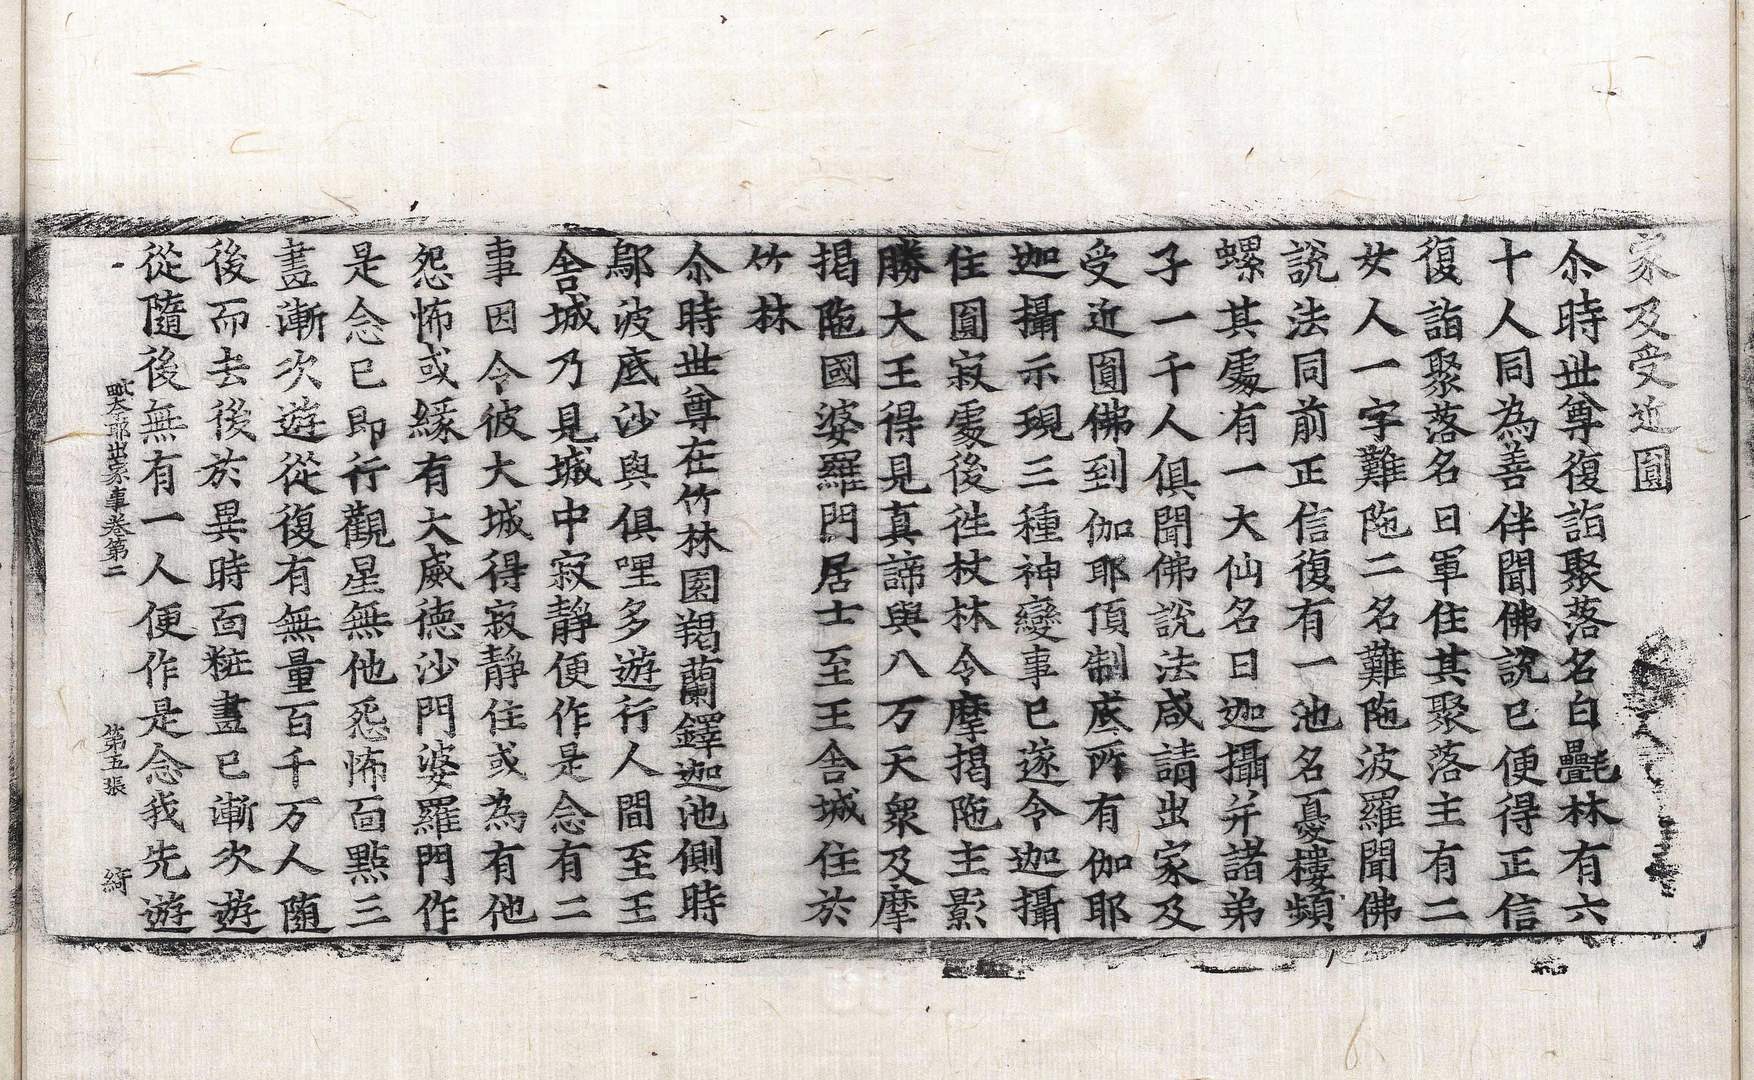 家及受近圓
尒時世尊復詣聚落名白㲲林有六
十人同為善伴聞佛說已便得正信
復詣聚落名曰軍住其聚落主有二
女人一字難陁二名難陁波羅聞佛
說法同前正信復有一池名憂樓頻
螺其處有一大仙名曰迦攝并諸弟
子一千人俱聞佛說法咸請出家及
受近圓佛到伽耶頂制底所有伽耶
迦攝示現三種神變事已遂令迦攝
住圓寂處後徃杖林令摩揭陁主影
勝大王得見真諦與八万天衆及摩
揭陁國婆羅門居士至王舍城住於
竹林
尒時世尊在竹林園羯蘭鐸迦池側時
鄔波底沙與俱哩多遊行人間至王
舍城乃見城中寂靜便作是念有二
事因令彼大城得寂靜住或為有他
怨怖或緣有大威德沙門婆羅門作
是念已即行觀星無他𢙣怖面點三
畫漸次遊從復有無量百千万人隨
後而去後於異時面粧畫已漸次遊
從隨後後無有一人便作是念我先遊
毗奈耶出家事卷第二 第五張 綺